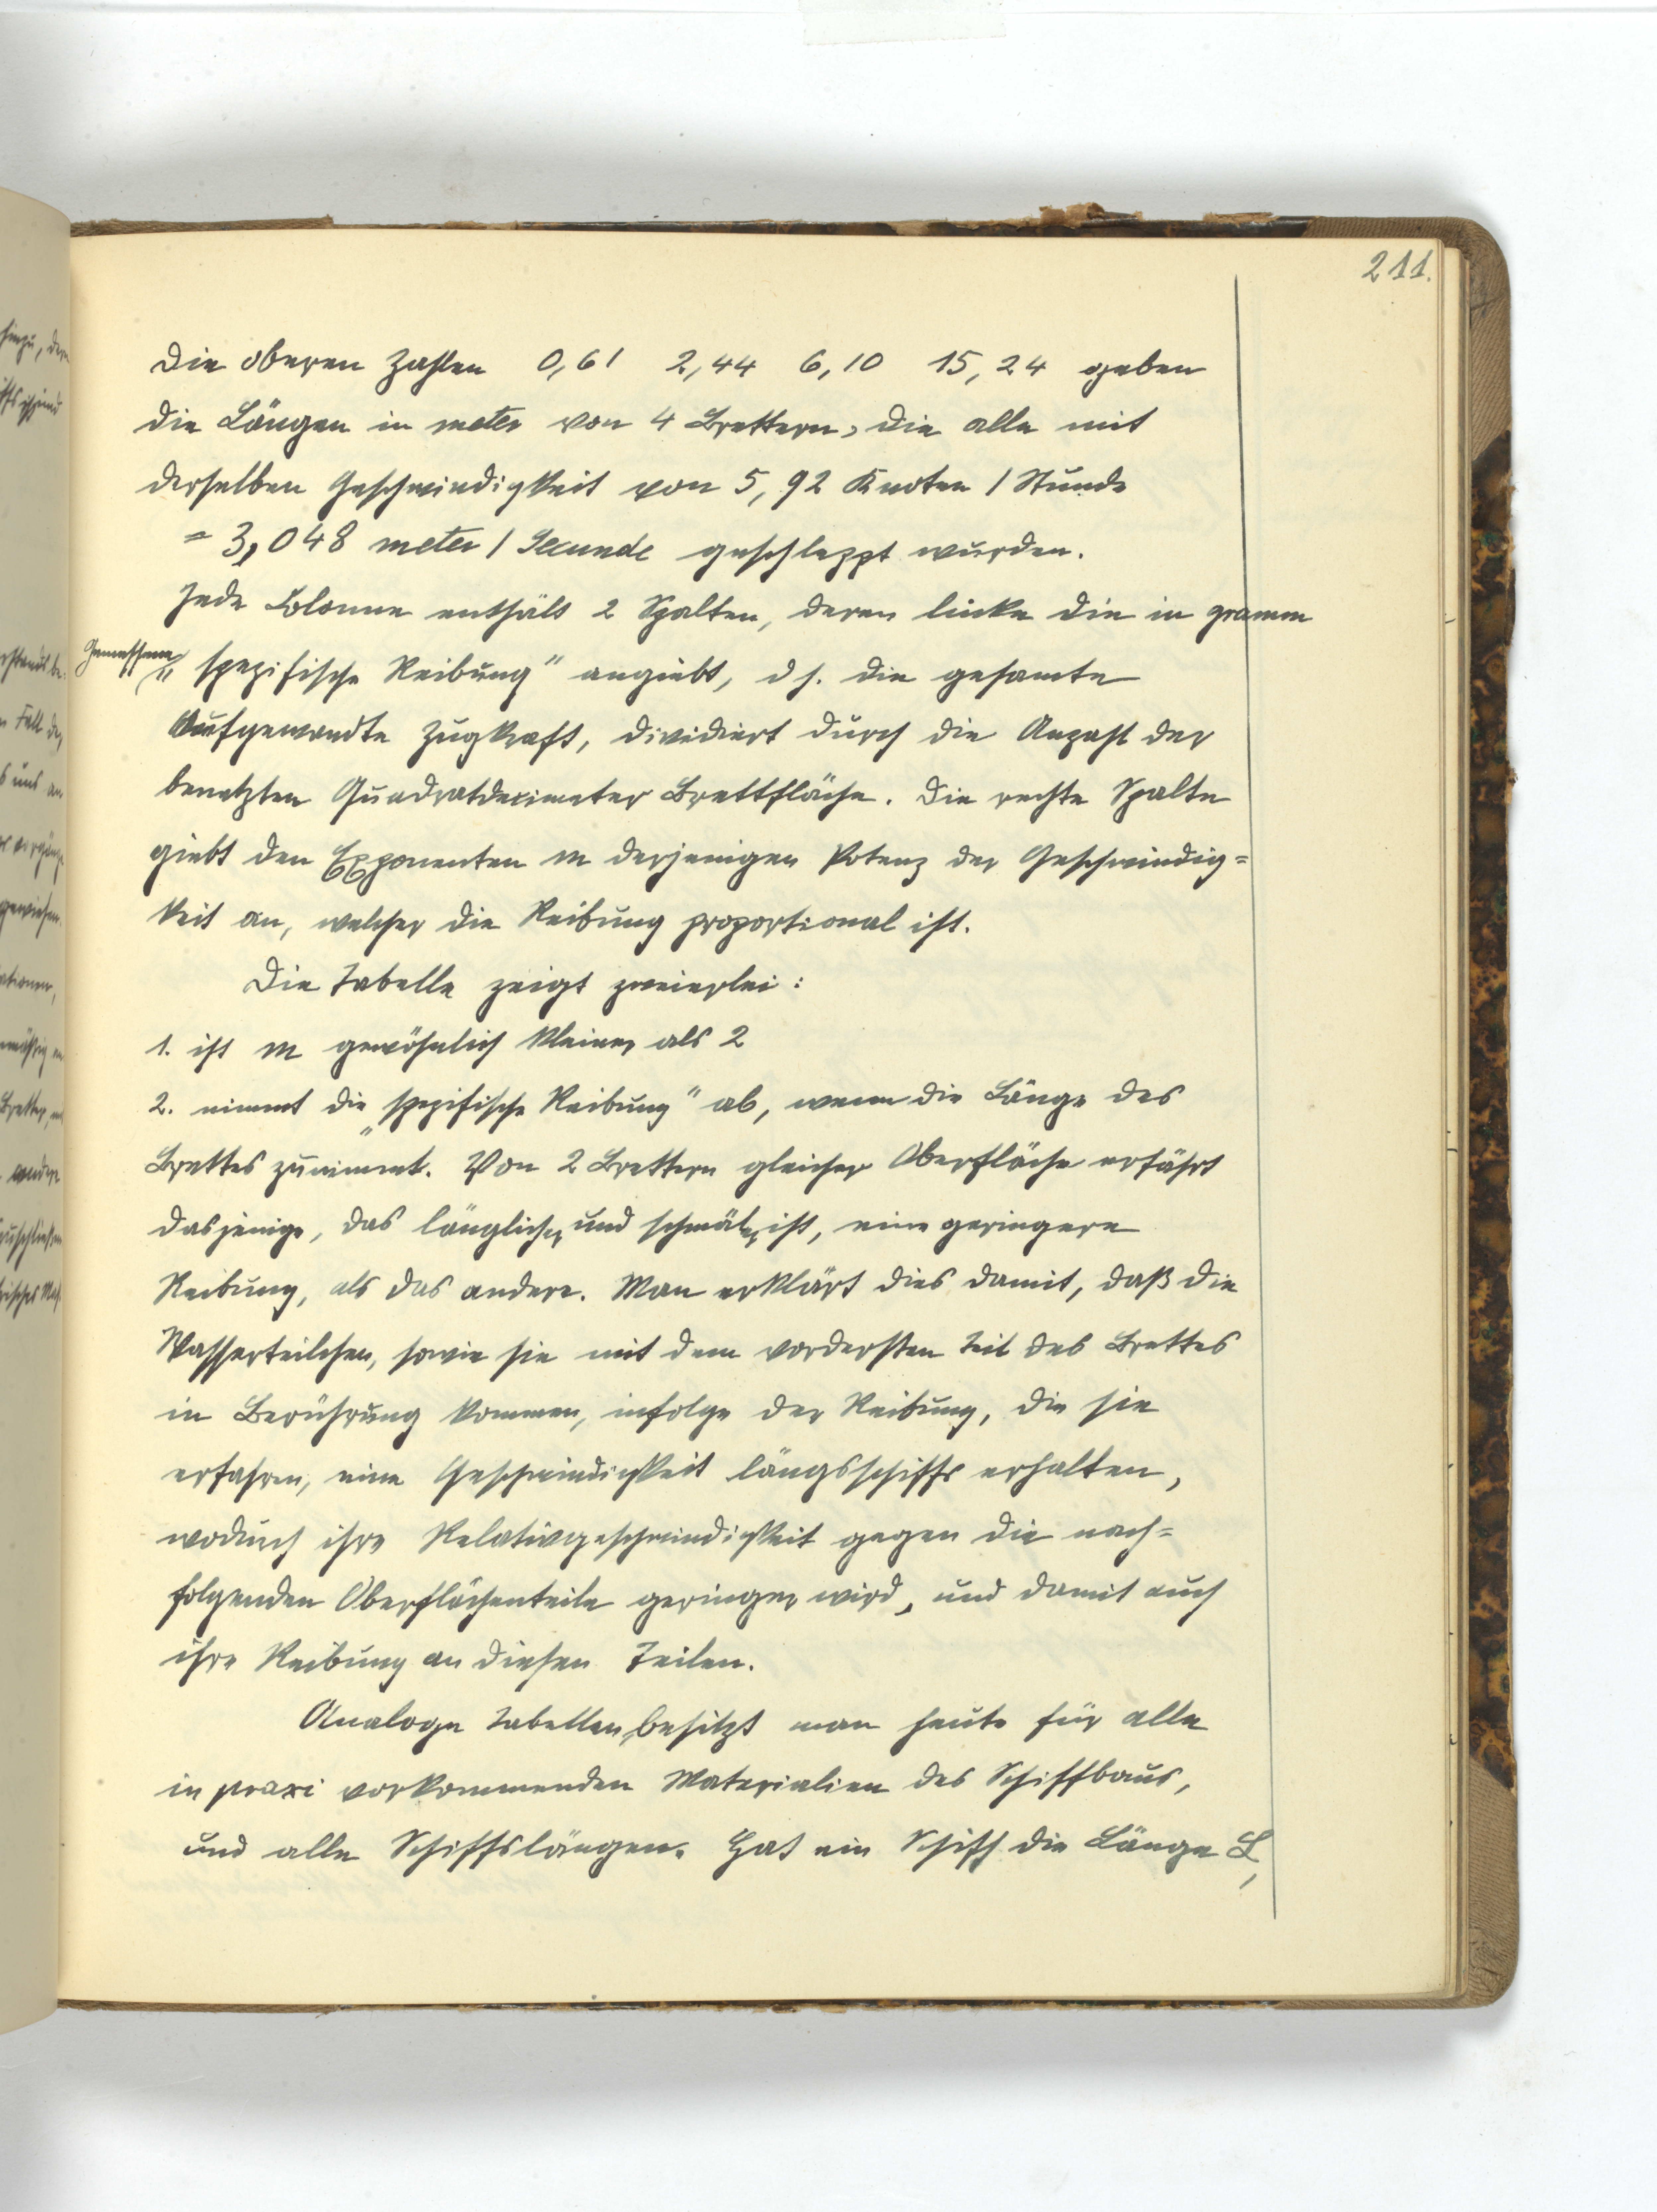 211.
Die oberen Zahlen 0,61 2,44 6,10 15,24 geben
die Längen in meter von 4 Brettern, die alle mit
derselben Geschwindigkeit von 5,92 Knoten / Stunde
= 3,048 meter / Secunde geschleppt wurden.
Jede Colonne enthält 2 Spalten, deren linke die in gramm
gemessene „spezifische Reibung" angiebt, d s. die gesamte
Aufgewandte Zugkraft, dividiert durch die Anzahl der
benetzten Quadratdecimeter Brettfläche. Die rechte Spalte
giebt den Exponenten m derjenigen Potenz der Geschwindig=
keit an, welcher die Reibung proportional ist.
Die Tabelle zeigt zweierlei:
1. ist m gewöhnlich kleiner als 2
2. nimmt die „spezifische Reibung" ab, wenn die Länge des
Brettes zunimmt. Von 2 Brettern gleicher Oberfläche erfährt
dasjenige, das länglicher und schmäler ist, eine geringere
Reibung, als das andere. Man erklärt dies damit, daß die
Wasserteilchen, sowie sie mit dem vordersten Teil des Brettes
in Berührung kommen, infolge der Reibung, die sie
erfahren, eine Geschwindigkeit längsschiffs erhalten,
wodurch ihre Relativgeschwindigkeit gegen die nach=
folgenden Oberflächenteile geringer wird, und damit auch
ihre Reibung an diesen Teilen.
Analoge Tabellen besitzt man heute für alle
in praxi vorkommenden Materialien des Schiffbaus,
und alle Schiffslängen. Hat ein Schiff die Länge L,